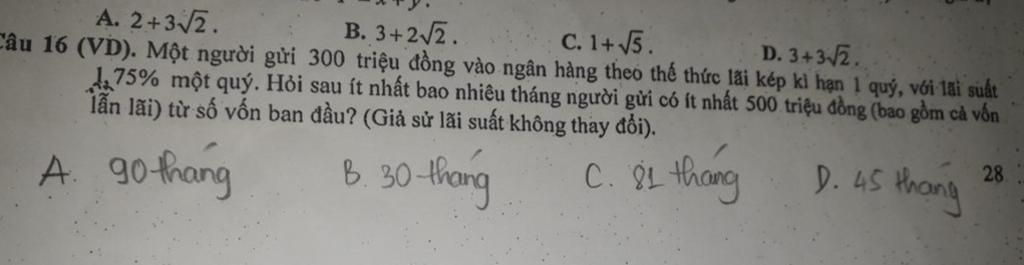 A. 2+3√2.
B. 3+2√2.
C. 1+√5.
D. 3+3√2.
Câu 16 (VD). Một người gửi 300 triệu đồng vào ngân hàng theo thế thức lãi kép kì hạn 1 quý, với lãi suất
1,75% một quý. Hỏi sau ít nhất bao nhiêu tháng người gửi có ít nhất 500 triệu đồng (bao gồm cả vốn
lẫn lãi) từ số vốn ban đầu? (Giả sử lãi suất không thay đổi).
A. 90 tháng
B. 30 tháng
C. 81 tháng
D. 45 tháng
28